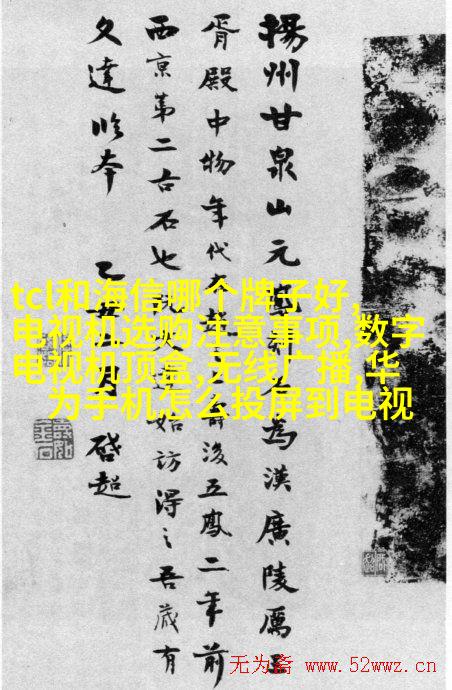 tcl和海信哪个牌子好,
电视机选购注意事项,数字
电视机顶盒,无线广播,华
为手机怎么投屏到电视
揚州甘泉山元 為漢廣陵厲王
胥殿中物年代 後五鳳二年前
西京第二古石也 始訪得之吾藏有
文達臨本 乙丑 月 啓超
无为斋 www.52wwz.cn